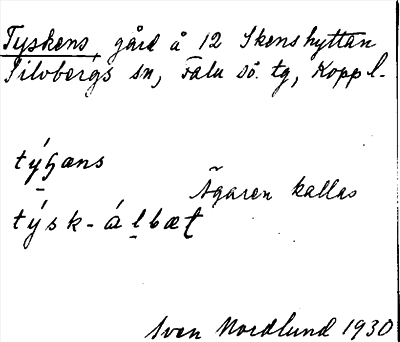 Tyskens, gård å 12 Skenshyttan
Silvbergs sn, Falu sö. tg, Koppl.
týʃæns
Ägaren kallas
týsk-álbæt
Sven Nordlund 1930